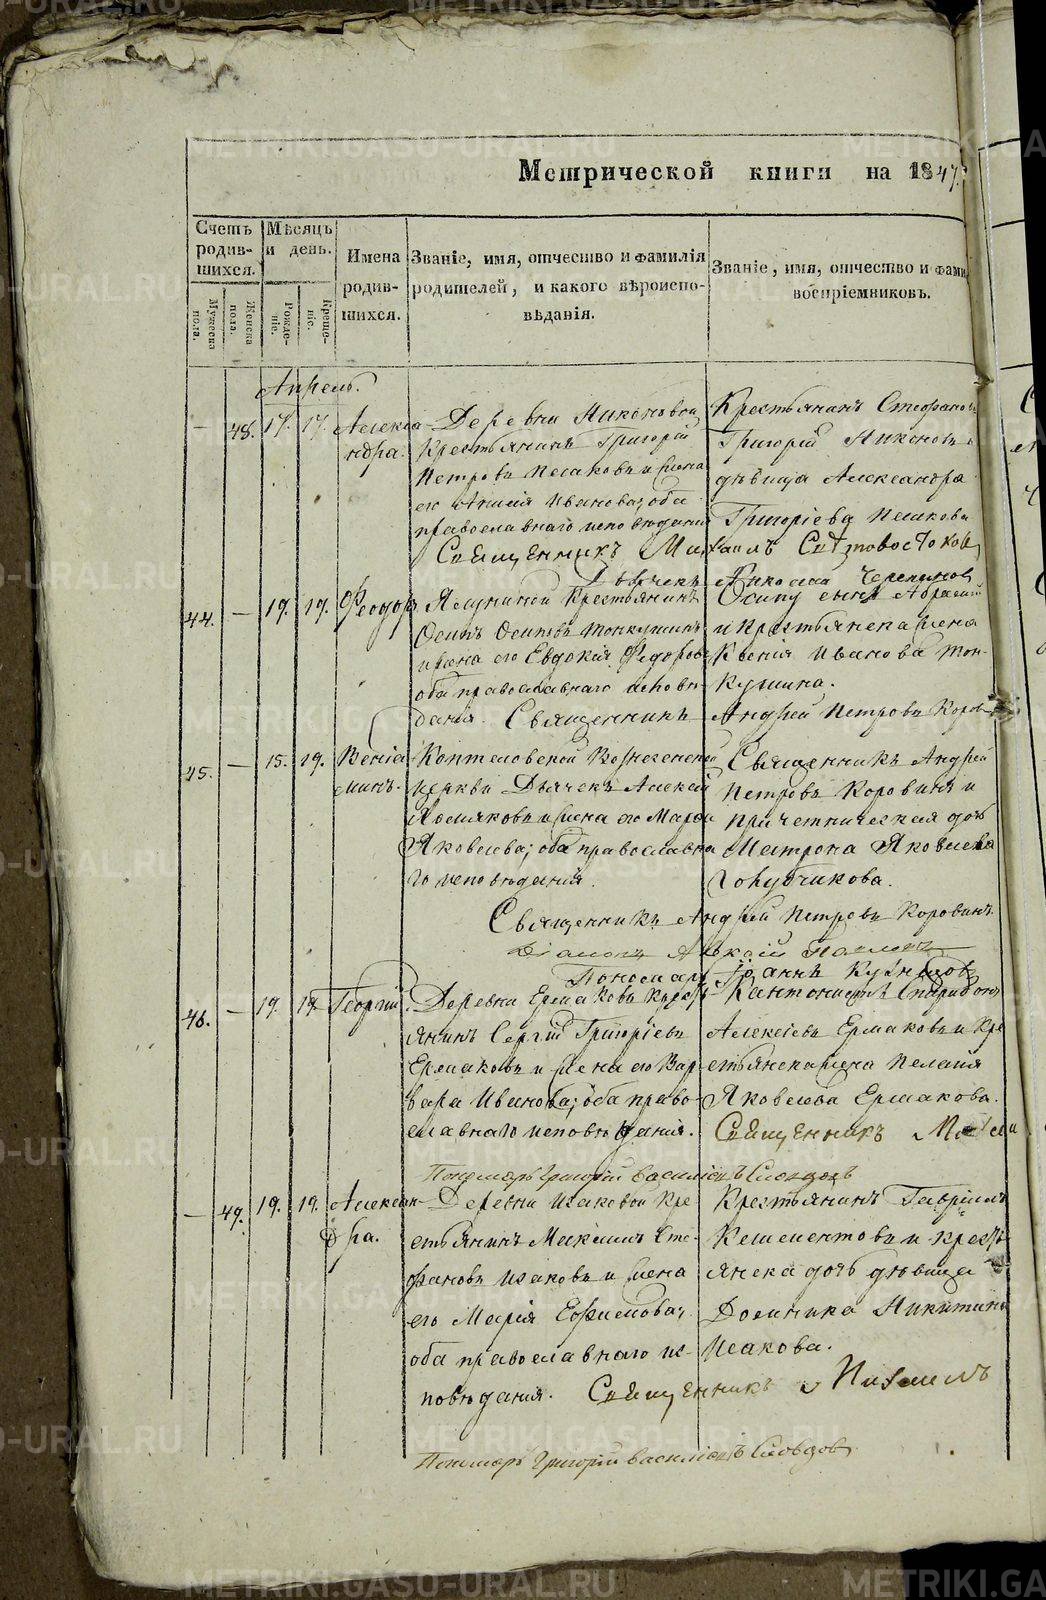 Метрической книги на 1847.
Счетъ родив-шихся.
Мужеска пола.
Женска пола.
Мѣсяцъ и день.
Рожде-ніе.
Креще-ніе.
Имена родив-шихся.
Званіе, имя, отчество и фамилія
родителей, и какого вѣроиспо-
вѣданія.
Званіе, имя, отчество и фами
воспріемниковъ.
Апрель.
— 48. 17. 17. Алекса
ндра.
Деревни Никоновой
Крестьянинъ Григорій
Петровъ Пешковъ и жена
его Иванова; оба
православнаго исповѣданія
Крестьянинъ Стефанъ
Григорій Никоновъ и
дѣвица Александра
Григоріева Пешкова
Священникъ Михаилъ Свѣтовостоковъ
Дьячекъ Николай Черепановъ
44. — 19. 19. Феодоръ
Ялуниной Крестьянинъ
Осипъ Осиповъ Тонкушинъ
и жена его Евдокія Федорова
оба православнаго исповѣ-
данія.
и Крестьянска жена
Ксенія Иванова Тон-
кушина.
Священникъ Андрей Петровъ Коровинъ
45. — 15. 19. Веніа
минъ.
Коптеловской Вознесенской
церкви Дьячекъ Алексей
и жена его Марфа
Яковлева; оба православна
го исповѣданія.
Священникъ Андрей
Петровъ Коровинъ и
причетническая дочь
Матрона Яковлева
Голубчикова.
Священникъ Андрей Петровъ Коровинъ
Діаконъ Алексій
Пономарь Іоаннъ Кузнецовъ
46. — 19. 19. Георгій.
Деревни Ермаковъ Кресть
янинъ Сергій Григоріевъ
Ермаковъ и жена его Вар-
вара Иванова; оба право-
славнаго исповѣданія.
Кантонистъ Спиридонъ
Алексіевъ Ермаковъ и Кре
стьянска жена Пелагія
Яковлева Ермакова.
Священникъ Михаи
Пономарь Григорій Василіевъ Словцовъ
— 49. 19. 19. Алексан-
дра.
Деревни Исаковой Кре
стьянинъ Максимъ Сте-
фановъ Исаковъ и жена
его Марія Ефимова,
оба православнаго ис-
повѣданія.
Крестьянинъ Гавріилъ
Клементовъ и кресть
янска дочь дѣвица
Домника Никитина
Исакова.
Священникъ Михаилъ
Пономарь Григорій Василіевъ Словцовъ
METRIKI.GASO-URAL.RU